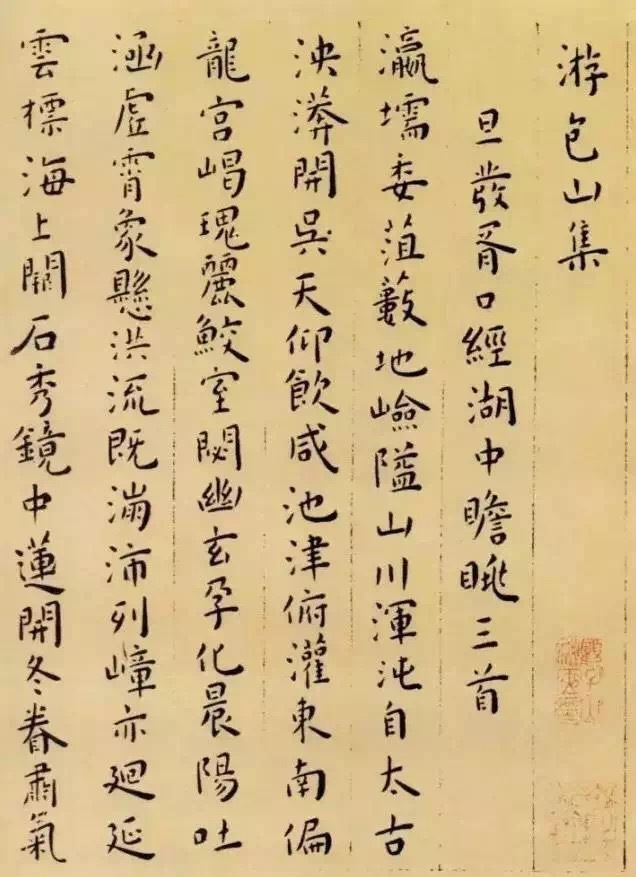 游包山集
旦發胥口經湖中瞻眺三首
瀛壖委菹藪地嶮隘山川渾沌自太古
泱漭開吳天仰飲咸池津俯灌東南偏
龍宮嵑瑰麗鮫室閟幽玄孕化晨陽吐
涵虛霄象懸洪流既沛列嶂亦廻延
雲標海上闕石秀鏡中蓮開冬眷肅氣